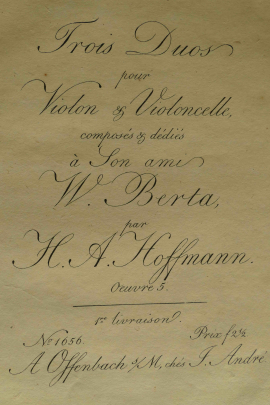 Trois Duos
pour
Violon & Violoncelle,
composés & dédiés
à Son ami
W. Berta,
par
H. A. Hoffmann.
Oeuvre 5.
1re livraison.
No. 1656. Prix f 2½
A Offenbach s/M, chés J. André